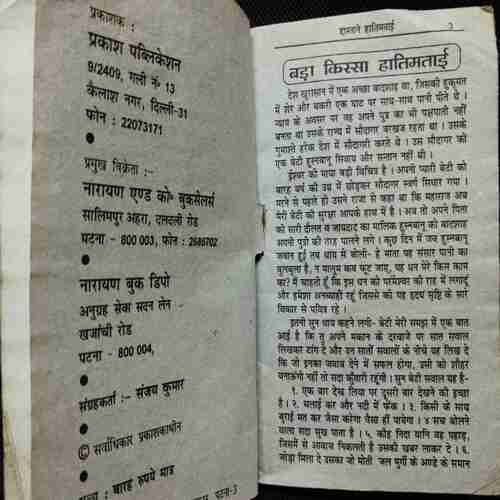 प्रकाशक :
प्रकाश पब्लिकेशन
9/2409, गली नं० 13
कैलाश नगर, दिल्ली-31
फोन : 22073171
प्रमुख विक्रेता :-
नारायण एण्ड को० बुकसेलर्स
सालिमपुर अहरा, दानदली रोड
पटना - 800 003, फोन : 2685702
नारायण बुक डिपो
अनुग्रह सेवा सदन लेन
खजांची रोड
पटना - 800 004,
संग्रहकर्ता :- संजय कुमार
© सर्वाधिकार प्रकाशकाधीन
बारह रुपये मात्र
पटना-3
दास्ताने हातिमताई 3
बड़ा किस्सा हातिमताई
देश खुरासान में एक अच्छा बादशाह था, जिसकी हुकूमत
में शेर और बकरी एक घाट पर साथ-साथ पानी पीते थे ।
न्याय के अवसर पर वह अपने पुत्र का भी पक्षपाती नहीं
बनता था उसके राज्य में सौदागर बरखज रहता था । उसके
गुमाश्ते हरेक देश में सौदागरी करते थे । उस सौदागर की
एक बेटी हुस्नबानू सिवाय और सन्तान नहीं थी ।
ईश्वर की माया बड़ी विचित्र है । अपनी प्यारी बेटी को
बारह वर्ष की उम्र में छोड़कर सौदागर स्वर्ग सिधार गया ।
मरने से पहले ही उसने राजा से कहा था कि महाराज अब
मेरी बेटी की सुरक्षा आपके हाथ में है । अब तो अपने पिता
की सारी दौलत व जायदाद का मालिक हुस्नबानू को बादशाह
अपनी पुत्री की तरह पालने लगे । कुछ दिन में जब हुस्नबानू
जवान हुई तब धाय से बोली- हे माता यह संसार पानी का
बुलबुला है, न मालूम कब फूट जाय, यह धन मेरे किस काम
का? मैं चाहती हूँ कि इस धन को परमेश्वर की राह में लगाऊं
और हमेशा अनब्याही रहूं जिसमें की यह हृदय सृष्टि के सारे
विकार से पवित्र रहे ।
इतनी सुन धाय कहने लगी- बेटी मेरी समझ में एक बात
आई है कि तू अपने मकान के दरवाजे पर सात सवाल
लिखकर टांग दे और उन सातों सवालों के नीचे यह लिख दे
कि जो इनका जवाब देने में सफल होगा, उसी को शौहर
बनाऊंगी नहीं तो सदा कुंवारी रहूंगी । सुन बेटी सवाल यह है-
१. एक बार देख लिया पर दूसरी बार देखने की इच्छा
है । २. भलाई कर और नदी में फेंक । ३. किसी के साथ
बुराई मत कर जैसा करेगा वैसा ही पायेगा । ४ सच बोलने
वाला सदा सुख पाता है । ५. कोह निदा यानि वह पहाड़,
जिसमें से आवाज निकालती है उसकी खबर लाकर दे । ६.
जोड़ा मिला दे उसका जो मोती जल मुर्गी के अण्डे के समान